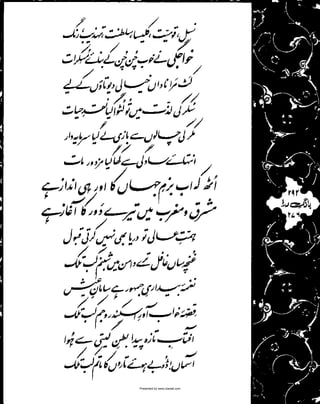 نسل، قومیّت، کلیسا، سلطنت، تہذیب، رنگ
خواجگی نے خوب چُن چُن کے بنائے مُسکِرات
کٹ مَرا ناداں خیالی دیوتاؤں کے لیے
سُکر کی لذّت میں تُو لُٹوا گیا نقدِ حیات
مکر کی چالوں سے بازی لے گیا سرمایہ دار
انتہائے سادگی سے کھا گیا مزدور مات
اُٹھ کہ اب بزمِ جہاں کا اور ہی انداز ہے
مشرق و مغرب میں تیرے دَور کا آغاز ہے
ہمّتِ عالی تو دریا بھی نہیں کرتی قبول
غنچہ ساں غافل ترے دامن میں شبنم کب تلک
نغمۂ بیداریِ جمہور ہے سامانِ عیش
قصّۂ خواب آورِ اسکندر و جم کب تلک
آفتابِ تازہ پیدا بطنِ گیتی سے ہُوا
آسماں! ڈوبے ہوئے تاروں کا ماتم کب تلک
بانگِ درا
Presented by www.ziaraat.com